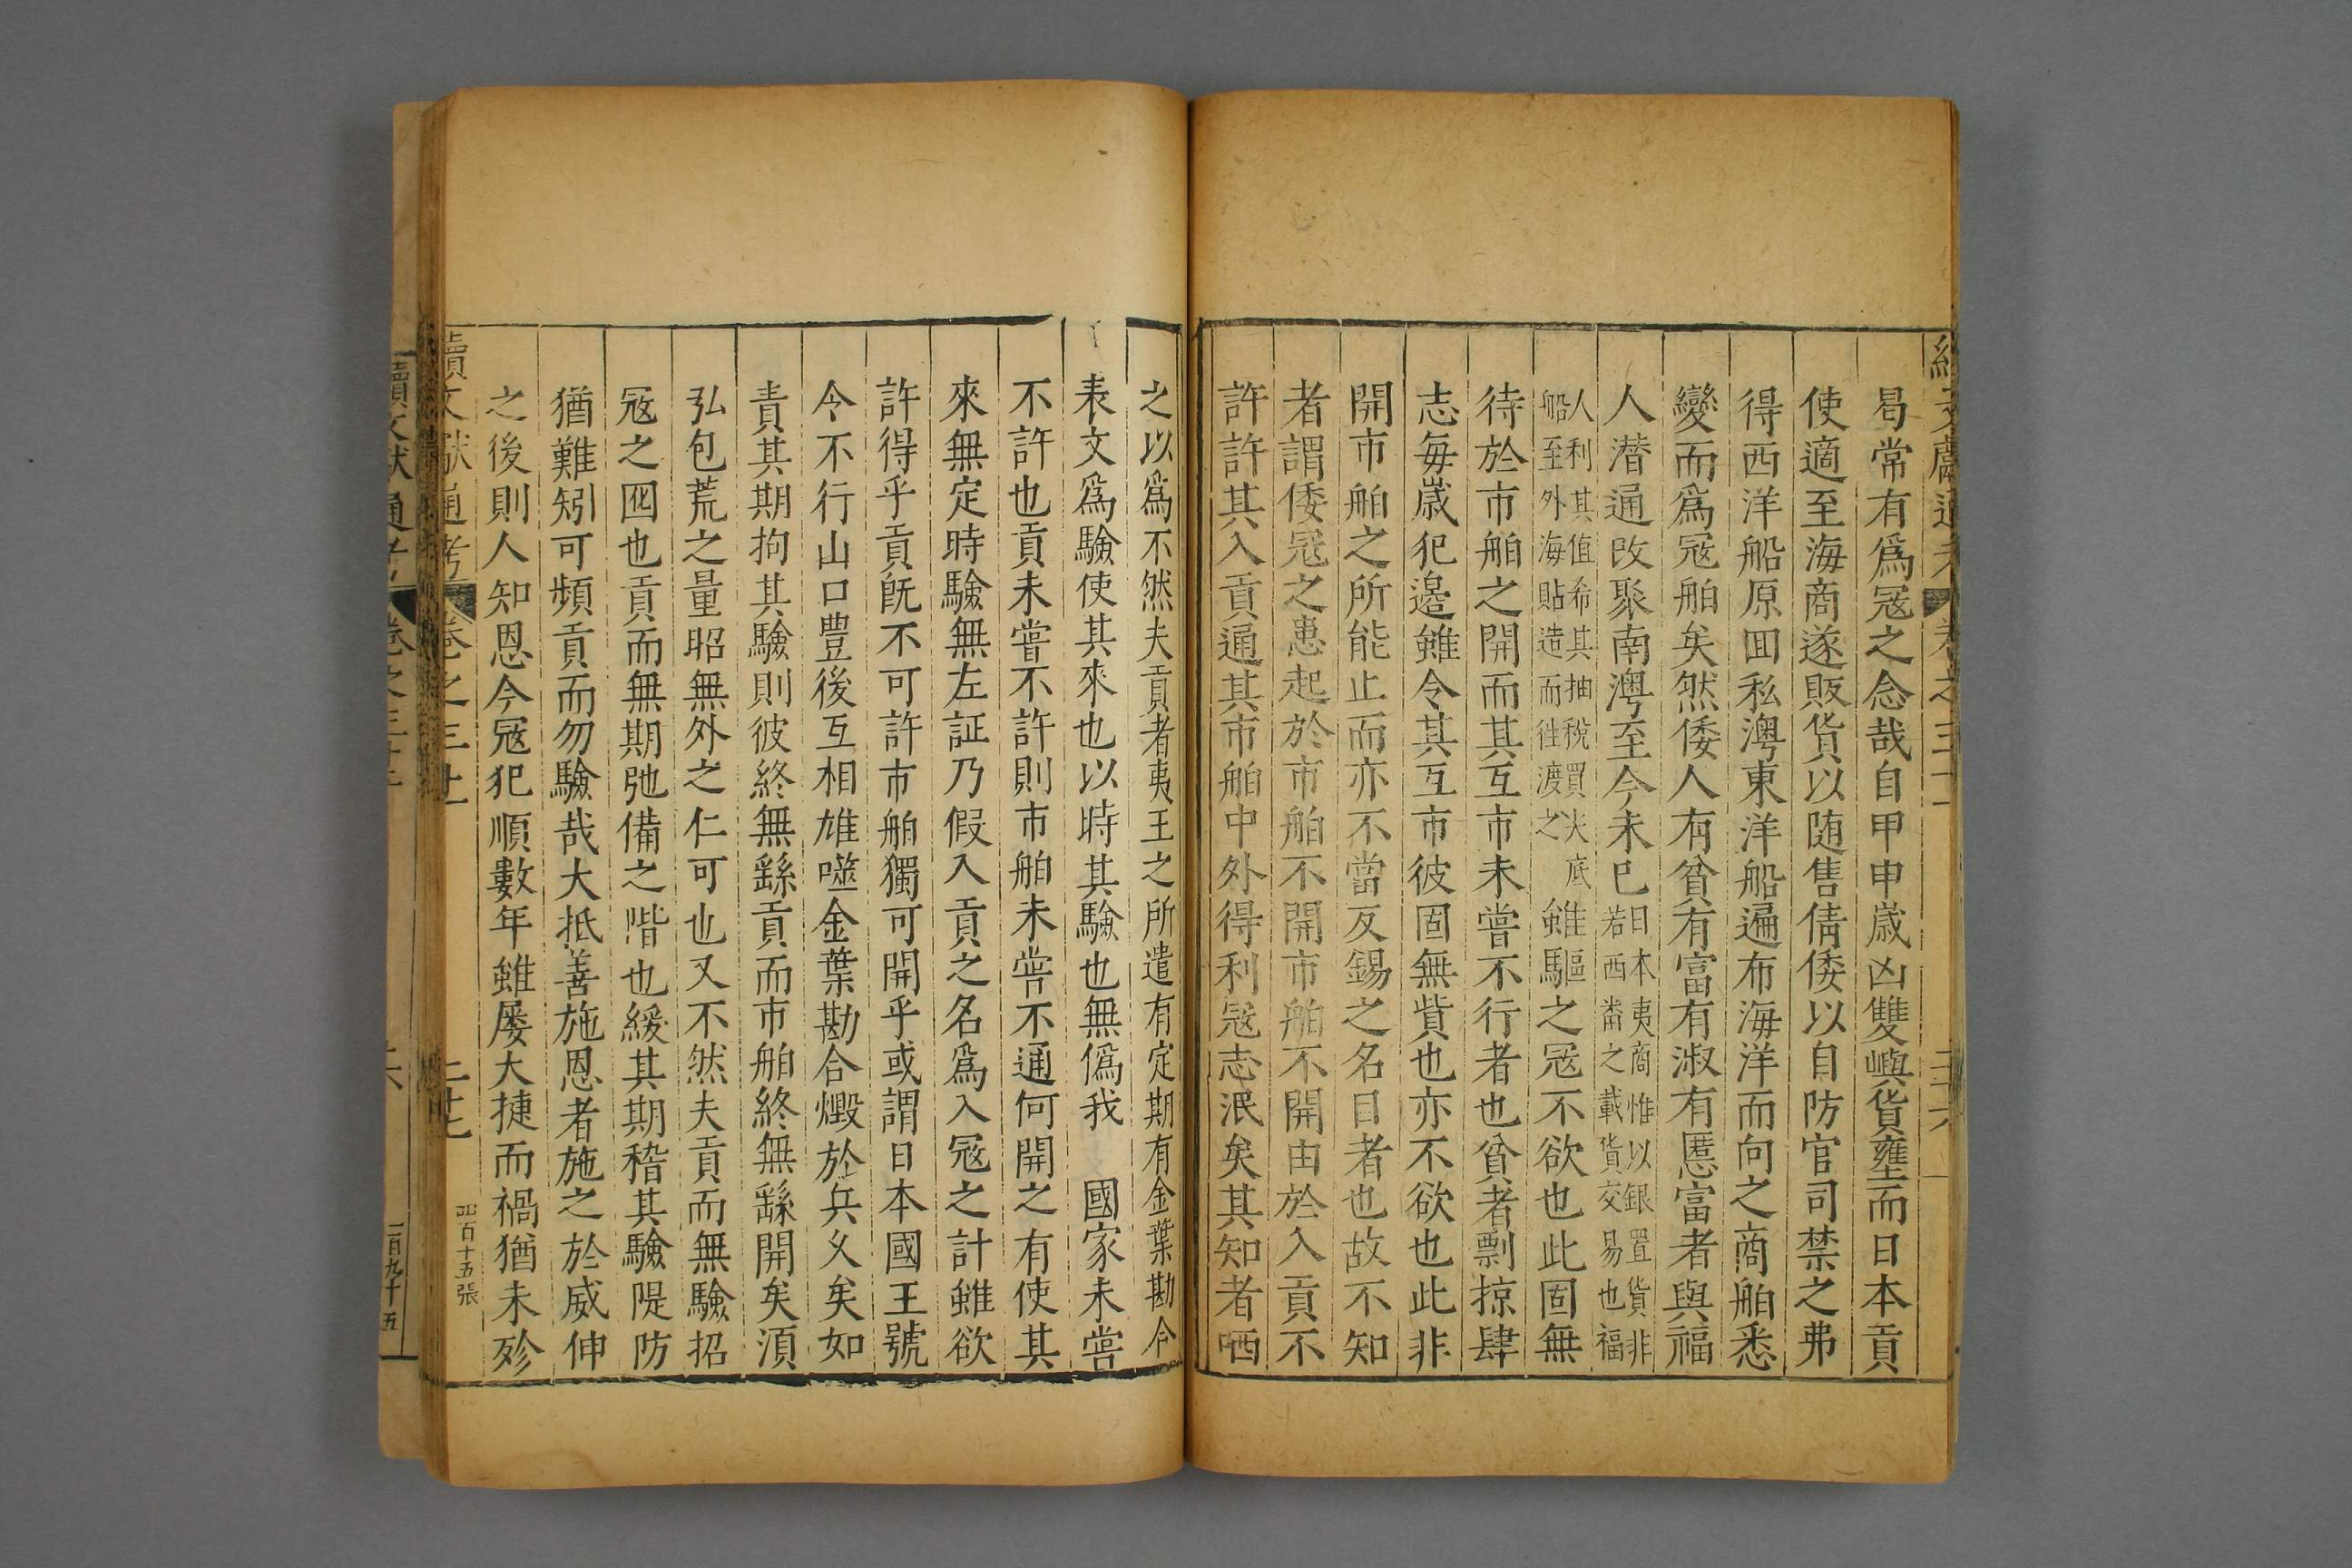 曷常有爲冦之念哉自甲申歲凶雙嶼貨壅而日本貢
使適至海商遂販貨以随售倩倭以自防官司禁之弗
得西洋船原囬私澳東洋船遍布海洋而向之商舶悉
變而爲冦舶矣然倭人有貧有富有淑有慝富者與福
人潜通改聚南澳至今未已日本夷商惟以銀置貨非
若西畨之載貨交易也福
人利其值希其抽稅買大底
船至外海貼造而徃渡之雖驅之冦不欲也此固無
待於市舶之開而其互市未嘗不行者也貧者剽掠肆
志每歲犯邊雖令其互市彼固無貲也亦不欲也此非
開市舶之所能止而亦不當反錫之名目者也故不知
者謂倭冦之患起於市舶不開市舶不開由於入貢不
許許其入貢通其市舶中外得利冦志泯矣其知者哂
之以爲不然夫貢者夷王之所遣有定期有金葉勘合
表文爲驗使其來也以時其驗也無僞我　國家未甞
不許也貢未嘗不許則市舶未甞不通何開之有使其
來無定時驗無左証乃假入貢之名爲入冦之計雖欲
許得乎貢旣不可許市舶獨可開乎或謂日本國王號
令不行山口豊後互相雄噬金葉勘合燬於兵乂矣如
責其期拘其驗則彼終無繇貢而市舶終無繇開矣湏
弘包荒之量昭無外之仁可也又不然夫貢而無驗招
冦之囮也貢而無期弛備之階也緩其期稽其驗隄防
猶難矧可頻貢而勿驗哉大抵善施恩者施之於威伸
之後則人知恩今冦犯順數年雖屡大捷而禍猶未殄
續文獻通考　卷之三十一　二十七
四百十五張